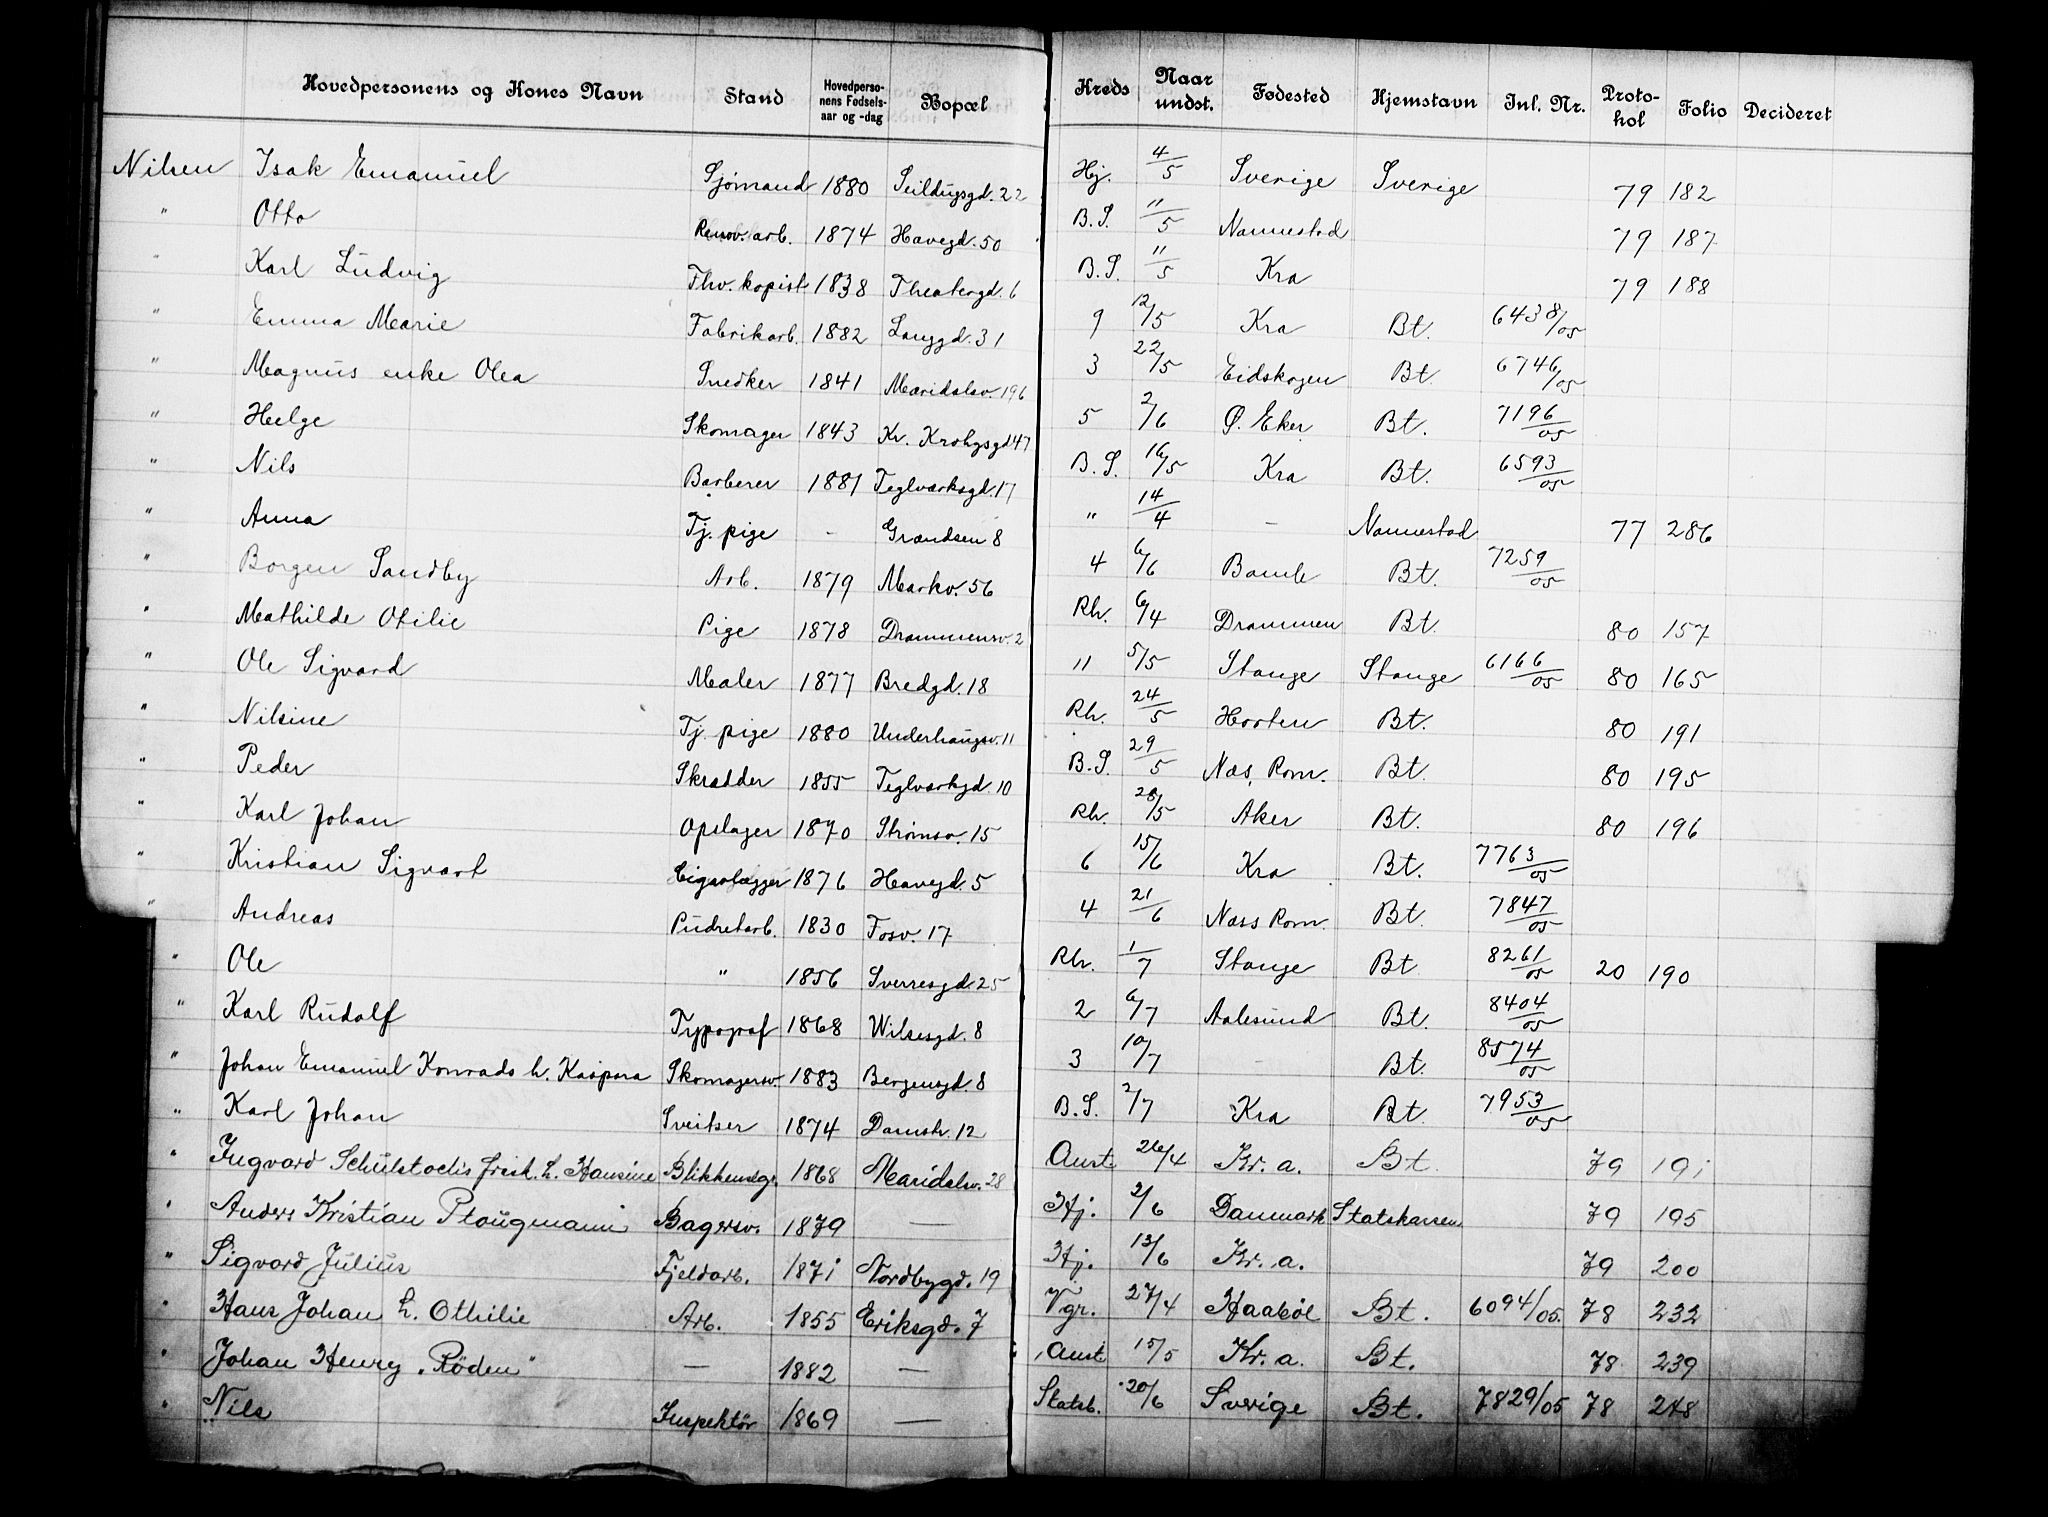 Hovedpersonens og Kones Navn Stand Hovedperso-nens Fødsels-aar og -dag Bopæl Kreds Naar undst. Fødested Hjemstavn Inl. Nr. Proto-kol Folio Decideret
Nilsen Isak Emanuel Sjømand 1880 Seildugsgd. 22 Hj. 4/5 Sverige Sverige 79 182
" Otto Renov. arb. 1874 Havegd. 50 B.S. 11/5 Nannestad 79 187
" Karl Ludvig Fhv. kopist 1838 Theatergd. 6 B.S. 11/5 Kra 79 188
" Emma Marie Fabrikarb. 1882 Langgd. 31 9 12/5 Kra Bt. 6438/05
" Magnus enke Olea Snedker 1841 Maridalsv. 196 3 22/5 Eidskogen Bt. 6746/05
" Helge Skomager 1843 Kr. Krohgsgd 47 5 2/6 Ø. Eker Bt. 7196/05
" Nils Barberer 1881 Teglværksgd. 17 B.S. 16/5 Kra Bt. 6593/05
" Anna Tj. pige - Grændsen 8 " 14/4 - Nannestad 77 286
" Borgen Sandby Arb. 1879 Markv. 56 4 6/6 Bamle Bt. 7259/05
" Mathilde Otilie Pige 1878 Drammensv. 2 Rh. 6/4 Drammen Bt. 80 157
" Ole Sigvard Maler 1877 Bredgd. 18 11 5/5 Stange Stange 6166/05 80 165
" Nilsine Tj. pige 1880 Underhaugsv. 11 Rh. 24/5 Horten Bt. 80 191
" Peder Skrædder 1855 Teglværksgd. 10 B.S. 29/5 Næs, Rom. Bt. 80 195
" Karl Johan Opslager 1870 Strømsv. 15 Rh. 28/5 Aker Bt. 80 196
" Kristian Sigvart Cigarlægger 1876 Havegd. 5 6 15/6 Kra Bt. 7763/05
" Andreas Pudretarb. 1830 Fosv. 17 4 21/6 Næss Rom. Bt. 7847/05
" Ole " 1856 Sverresgd. 25 Rh. 1/7 Stange Bt 8261/05 20 190
" Karl Rudolf Typograf 1868 Wilsesgd. 8 2 6/7 Aalesund Bt. 8404/05
" Johan Emanuel Konrads h. Kaspara Skomagersv. 1883 Bergensgd. 8 3 10/7 - Bt. 8574/05
" Karl Johan Sveitser 1874 Damstr. 12 B.S. 2/7 Kra Bt. 7953/05
" Ingvard h. Hansine Blikkenslgr. 1868 Maridalsv. 28 Aust 26/4 Kr.a. Bt 79 191
" Anders Kristian Plougmann Bagersv. 1879 — Hj. 2/6 Danmark Statskassen 79 195
" Sigvard Julius Fjeldarb. 1871 Nordbygd. 19 Hj. 13/6 Kr.a. 79 200
" Hans Johan h. Othilie Arb. 1855 Eriksgd. 7 Vgr. 27/4 Haabøl Bt. 6094/05. 78 232
" Johan Henry "Röden" — 1882 — Aust 15/5 Kr.a. Bt. 78 239
" Nils Inspektör 1869 — Statsb. 20/6 Sverige Bt. 7829/05 78 248